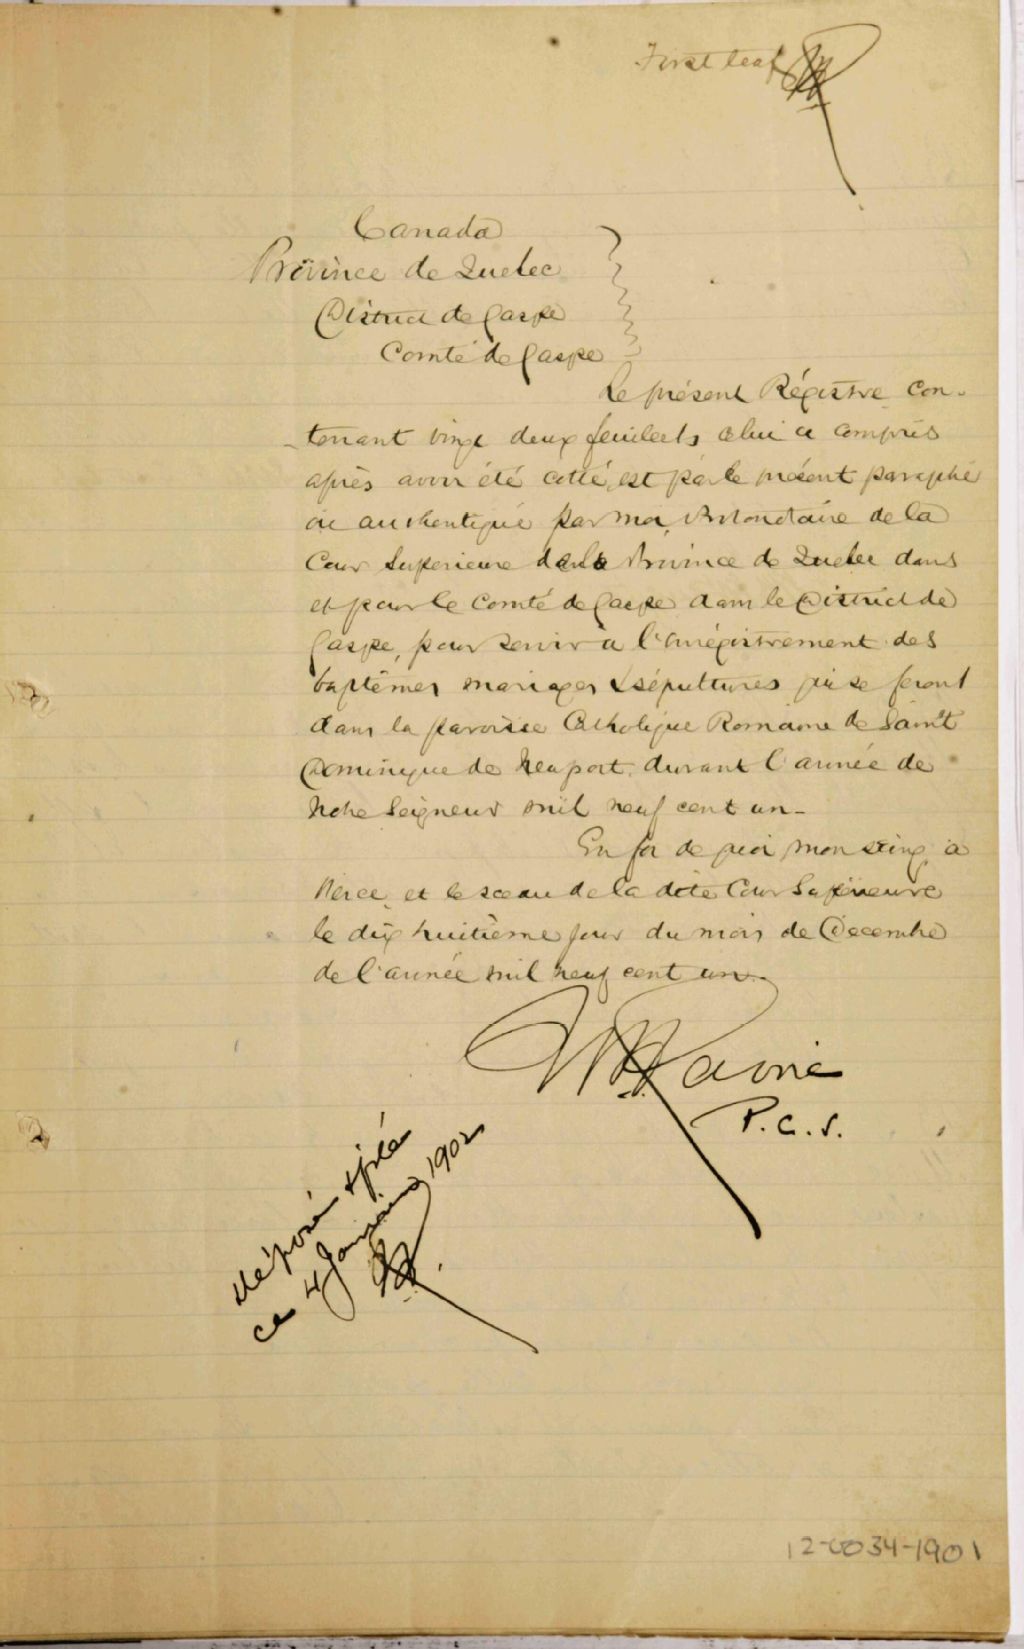 First leaf
Canada
Province de Quebec
District de Gaspe
Comté de Gaspe
Le présent Régistre con-
tenant vingt deux feuillets celui ci compris
après avoir été cotté est par le présent paraphé
ou authentiqué par moi, Protonotaire de la
Cour Superieure de la Province de Quebec dans
et pour le Comté de Gaspe dans le District de
Gaspe, pour servir a l'enrégistrement des
baptêmes mariages & sépultures qui se feront
dans la paroisse Catholique Romaine de Saint
Dominique de Newport, durant l'année de
Notre Seigneur mil neuf cent un -
En foi de quoi mon seing, a
Percé, et le sceau de la dite Cour Supérieure
le dix huitième jour du mois de Decembre
de l'année mil neuf cent un.
P.C.S.
déposé &
ce 4 Janvier 1902
12-0034-1901